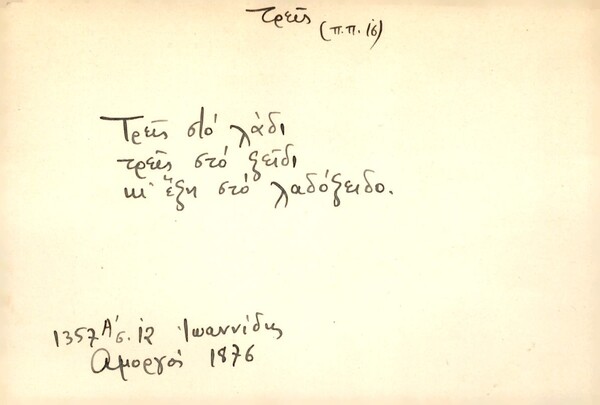 τρεῖς
(π.π. 16)
Τρεῖς στό λάδι
τρεῖς στό ξεῖδι
κι' ἕξη στό λαδόξειδο.
1357 Α' σ. 12 Ἰωαννίδης
Ἀμοργός 1876